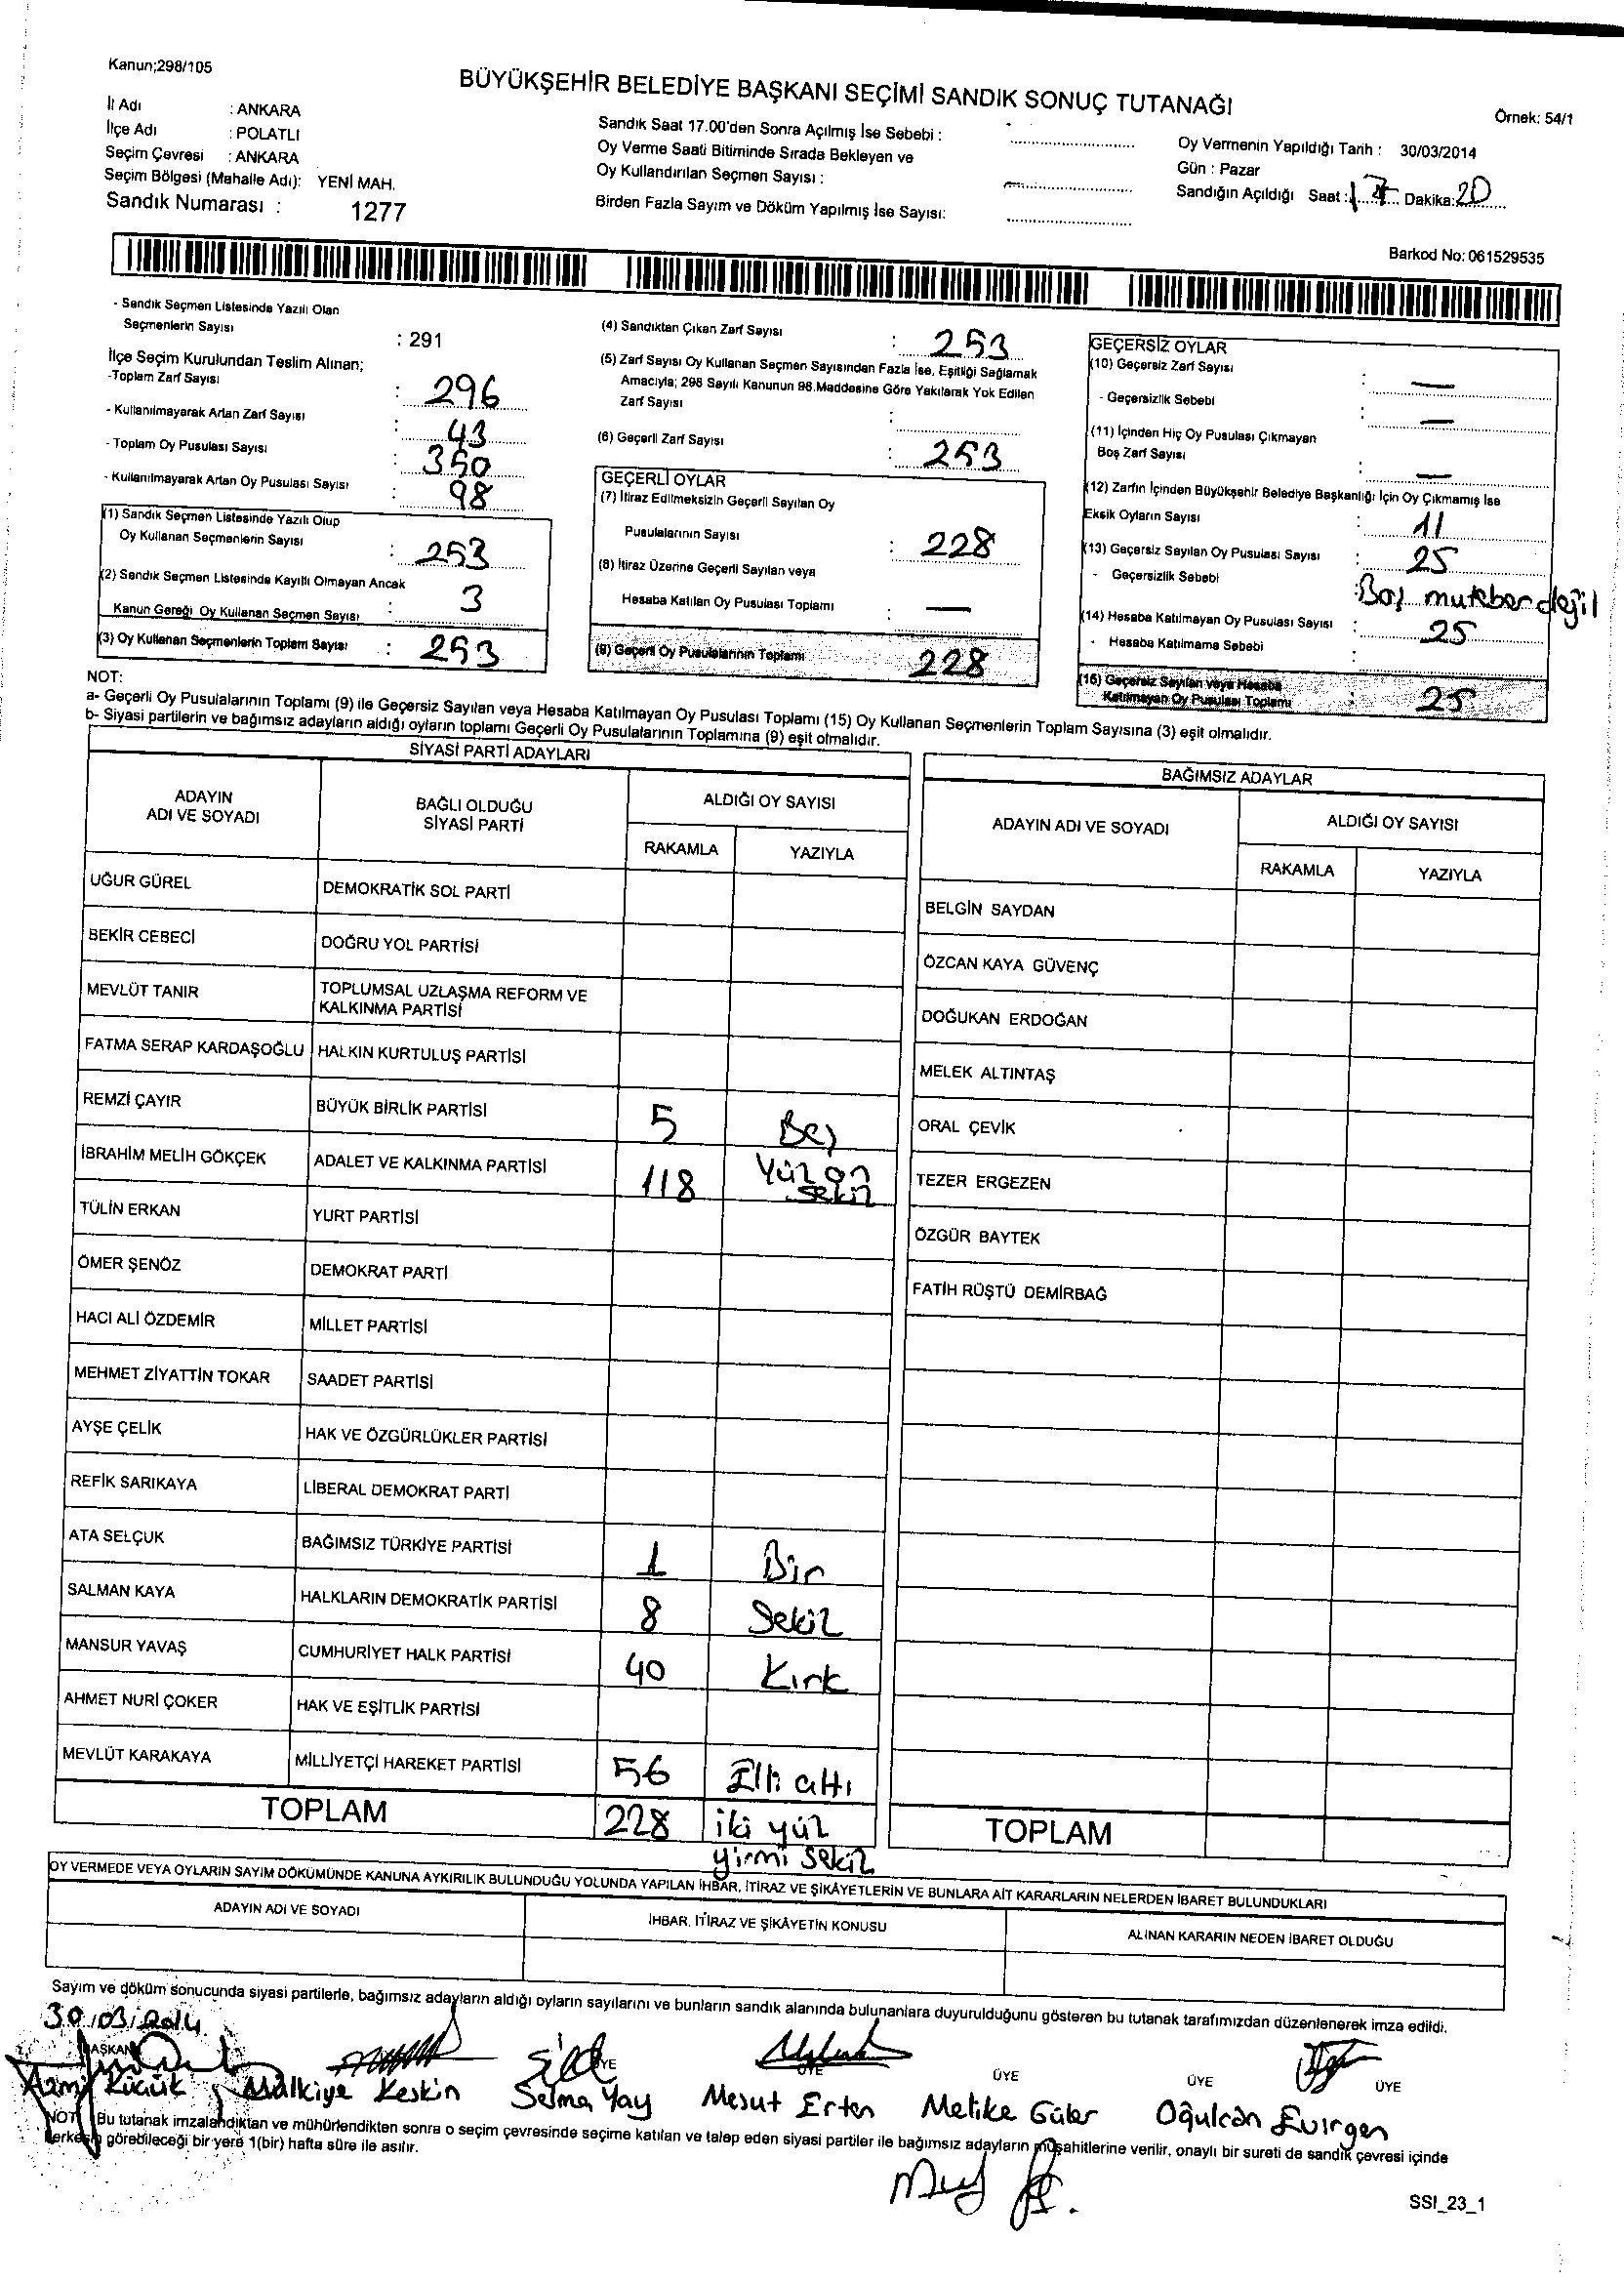 Kanun;298/105
BÜYÜKŞEHİR BELEDİYE BAŞKANI SEÇİMİ SANDIK SONUÇ TUTANAĞI
Örnek: 54/1
İl Adı : ANKARA
İlçe Adı : POLATLI
Seçim Çevresi : ANKARA
Seçim Bölgesi (Mahalle Adı): YENİ MAH.
Sandık Numarası : 1277
Sandık Saat 17.00'den Sonra Açılmış İse Sebebi :
Oy Verme Saati Bitiminde Sırada Bekleyen ve
Oy Kullandırılan Seçmen Sayısı :
Birden Fazla Sayım ve Döküm Yapılmış İse Sayısı:
Oy Vermenin Yapıldığı Tarih : 30/03/2014
Gün : Pazar
Sandığın Açıldığı Saat : 17 Dakika: 20
Barkod No: 061529535
- Sandık Seçmen Listesinde Yazılı Olan
Seçmenlerin Sayısı : 291
İlçe Seçim Kurulundan Teslim Alınan;
-Toplam Zarf Sayısı : 296
- Kullanılmayarak Artan Zarf Sayısı : 43
- Toplam Oy Pusulası Sayısı : 350
- Kullanılmayarak Artan Oy Pusulası Sayısı : 98
(1) Sandık Seçmen Listesinde Yazılı Olup
Oy Kullanan Seçmenlerin Sayısı : 253
(2) Sandık Seçmen Listesinde Kayıtlı Olmayan Ancak
Kanun Gereği Oy Kullanan Seçmen Sayısı : 3
(3) Oy Kullanan Seçmenlerin Toplam Sayısı : 253
(4) Sandıktan Çıkan Zarf Sayısı : 253
(5) Zarf Sayısı Oy Kullanan Seçmen Sayısından Fazla İse, Eşitliği Sağlamak
Amacıyla; 298 Sayılı Kanunun 98.Maddesine Göre Yakılarak Yok Edilen
Zarf Sayısı :
(6) Geçerli Zarf Sayısı : 253
GEÇERLİ OYLAR
(7) İtiraz Edilmeksizin Geçerli Sayılan Oy
Pusulalarının Sayısı : 228
(8) İtiraz Üzerine Geçerli Sayılan veya
Hesaba Katılan Oy Pusulası Toplamı : —
(9) Geçerli Oy Pusulalarının Toplamı 228
GEÇERSİZ OYLAR
(10) Geçersiz Zarf Sayısı : —
- Geçersizlik Sebebi : —
(11) İçinden Hiç Oy Pusulası Çıkmayan
Boş Zarf Sayısı : —
(12) Zarfın İçinden Büyükşehir Belediye Başkanlığı İçin Oy Çıkmamış İse
Eksik Oyların Sayısı : 11
(13) Geçersiz Sayılan Oy Pusulası Sayısı : 25
- Geçersizlik Sebebi : Boş muteber değil
(14) Hesaba Katılmayan Oy Pusulası Sayısı : 25
- Hesaba Katılmama Sebebi :
(15) Geçersiz Sayılan veya Hesaba
Katılmayan Oy Pusulası Toplamı : 25
NOT:
a- Geçerli Oy Pusulalarının Toplamı (9) ile Geçersiz Sayılan veya Hesaba Katılmayan Oy Pusulası Toplamı (15) Oy Kullanan Seçmenlerin Toplam Sayısına (3) eşit olmalıdır.
b- Siyasi partilerin ve bağımsız adayların aldığı oyların toplamı Geçerli Oy Pusulalarının Toplamına (9) eşit olmalıdır.
SİYASİ PARTİ ADAYLARI
ADAYIN ADI VE SOYADI BAĞLI OLDUĞU SİYASİ PARTİ ALDIĞI OY SAYISI
RAKAMLA YAZIYLA
UĞUR GÜREL DEMOKRATİK SOL PARTİ
BEKİR CEBECİ DOĞRU YOL PARTİSİ
MEVLÜT TANIR TOPLUMSAL UZLAŞMA REFORM VE KALKINMA PARTİSİ
FATMA SERAP KARDAŞOĞLU HALKIN KURTULUŞ PARTİSİ
REMZİ ÇAYIR BÜYÜK BİRLİK PARTİSİ 5 Beş
İBRAHİM MELİH GÖKÇEK ADALET VE KALKINMA PARTİSİ 118 Yüz on sekiz
TÜLİN ERKAN YURT PARTİSİ
ÖMER ŞENÖZ DEMOKRAT PARTİ
HACI ALİ ÖZDEMİR MİLLET PARTİSİ
MEHMET ZİYATTİN TOKAR SAADET PARTİSİ
AYŞE ÇELİK HAK VE ÖZGÜRLÜKLER PARTİSİ
REFİK SARIKAYA LİBERAL DEMOKRAT PARTİ
ATA SELÇUK BAĞIMSIZ TÜRKİYE PARTİSİ 1 Bir
SALMAN KAYA HALKLARIN DEMOKRATİK PARTİSİ 8 Sekiz
MANSUR YAVAŞ CUMHURİYET HALK PARTİSİ 40 Kırk
AHMET NURİ ÇOKER HAK VE EŞİTLİK PARTİSİ
MEVLÜT KARAKAYA MİLLİYETÇİ HAREKET PARTİSİ 56 Elli altı
TOPLAM 228 iki yüz yirmi sekiz
BAĞIMSIZ ADAYLAR
ADAYIN ADI VE SOYADI ALDIĞI OY SAYISI
RAKAMLA YAZIYLA
BELGİN SAYDAN
ÖZCAN KAYA GÜVENÇ
DOĞUKAN ERDOĞAN
MELEK ALTINTAŞ
ORAL ÇEVİK
TEZER ERGEZEN
ÖZGÜR BAYTEK
FATİH RÜŞTÜ DEMİRBAĞ
TOPLAM
OY VERMEDE VEYA OYLARIN SAYIM DÖKÜMÜNDE KANUNA AYKIRILIK BULUNDUĞU YOLUNDA YAPILAN İHBAR, İTİRAZ VE ŞİKÂYETLERİN VE BUNLARA AİT KARARLARIN NELERDEN İBARET BULUNDUKLARI
ADAYIN ADI VE SOYADI İHBAR, İTİRAZ VE ŞİKÂYETİN KONUSU ALINAN KARARIN NEDEN İBARET OLDUĞU
Sayım ve döküm sonucunda siyasi partilerle, bağımsız adayların aldığı oyların sayılarını ve bunların sandık alanında bulunanlara duyurulduğunu gösteren bu tutanak tarafımızdan düzenlenerek imza edildi.
30/03/2014
BAŞKAN ÜYE ÜYE ÜYE ÜYE ÜYE
Azmi Küçük Mülkiye Keskin Selma Yay Mesut Erten Melike Güler Oğulcan Evirgen
NOT: Bu tutanak imzalandıktan ve mühürlendikten sonra o seçim çevresinde seçime katılan ve talep eden siyasi partiler ile bağımsız adayların müşahitlerine verilir, onaylı bir sureti de sandık çevresi içinde
herkesin görebileceği bir yere 1(bir) hafta süre ile asılır.
SSI_23_1